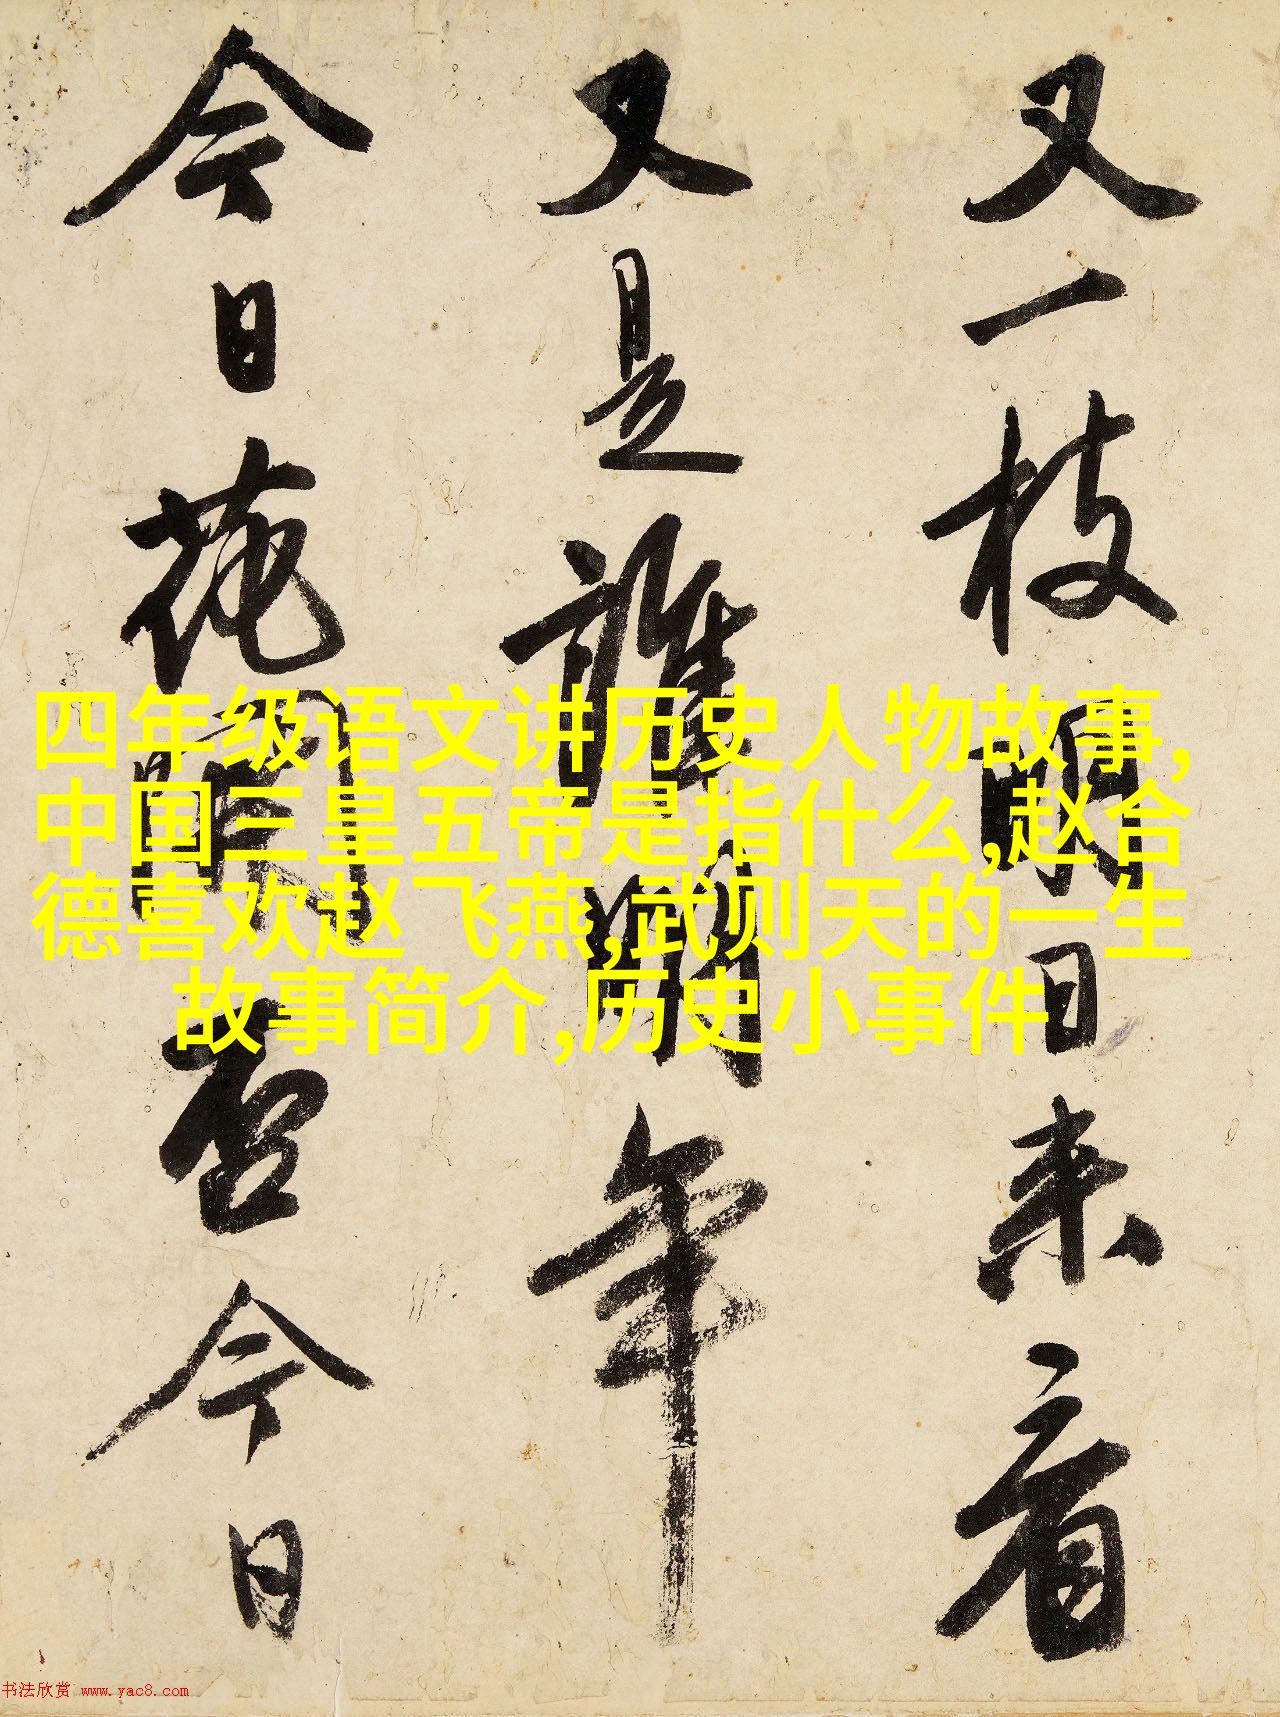 又一枝明日来看
又是誰明年
今日花開否今日
四年级语文讲历史人物故事,
中国三皇五帝是指什么,赵合
德喜欢赵飞燕,武则天的一生
故事简介,历史小事件
书法欣赏 www.yac8.com